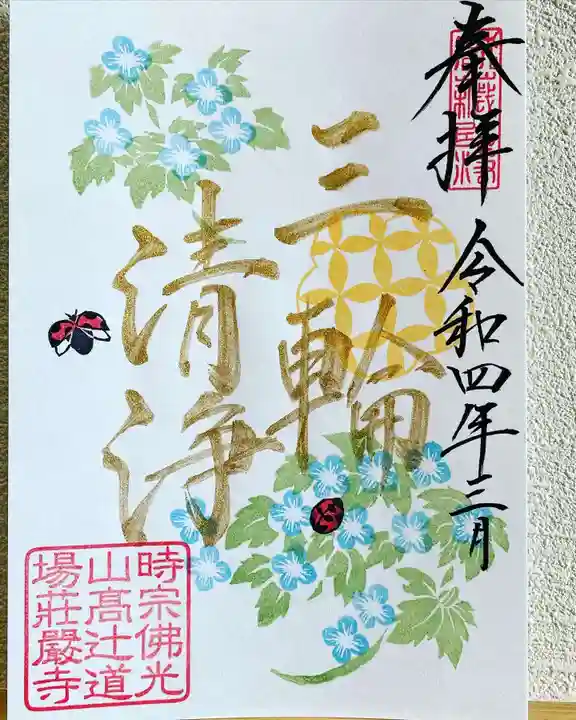 奉拝
令和四年三月
三輪
清浄
時宗佛光
山髙辻道
場莊嚴寺